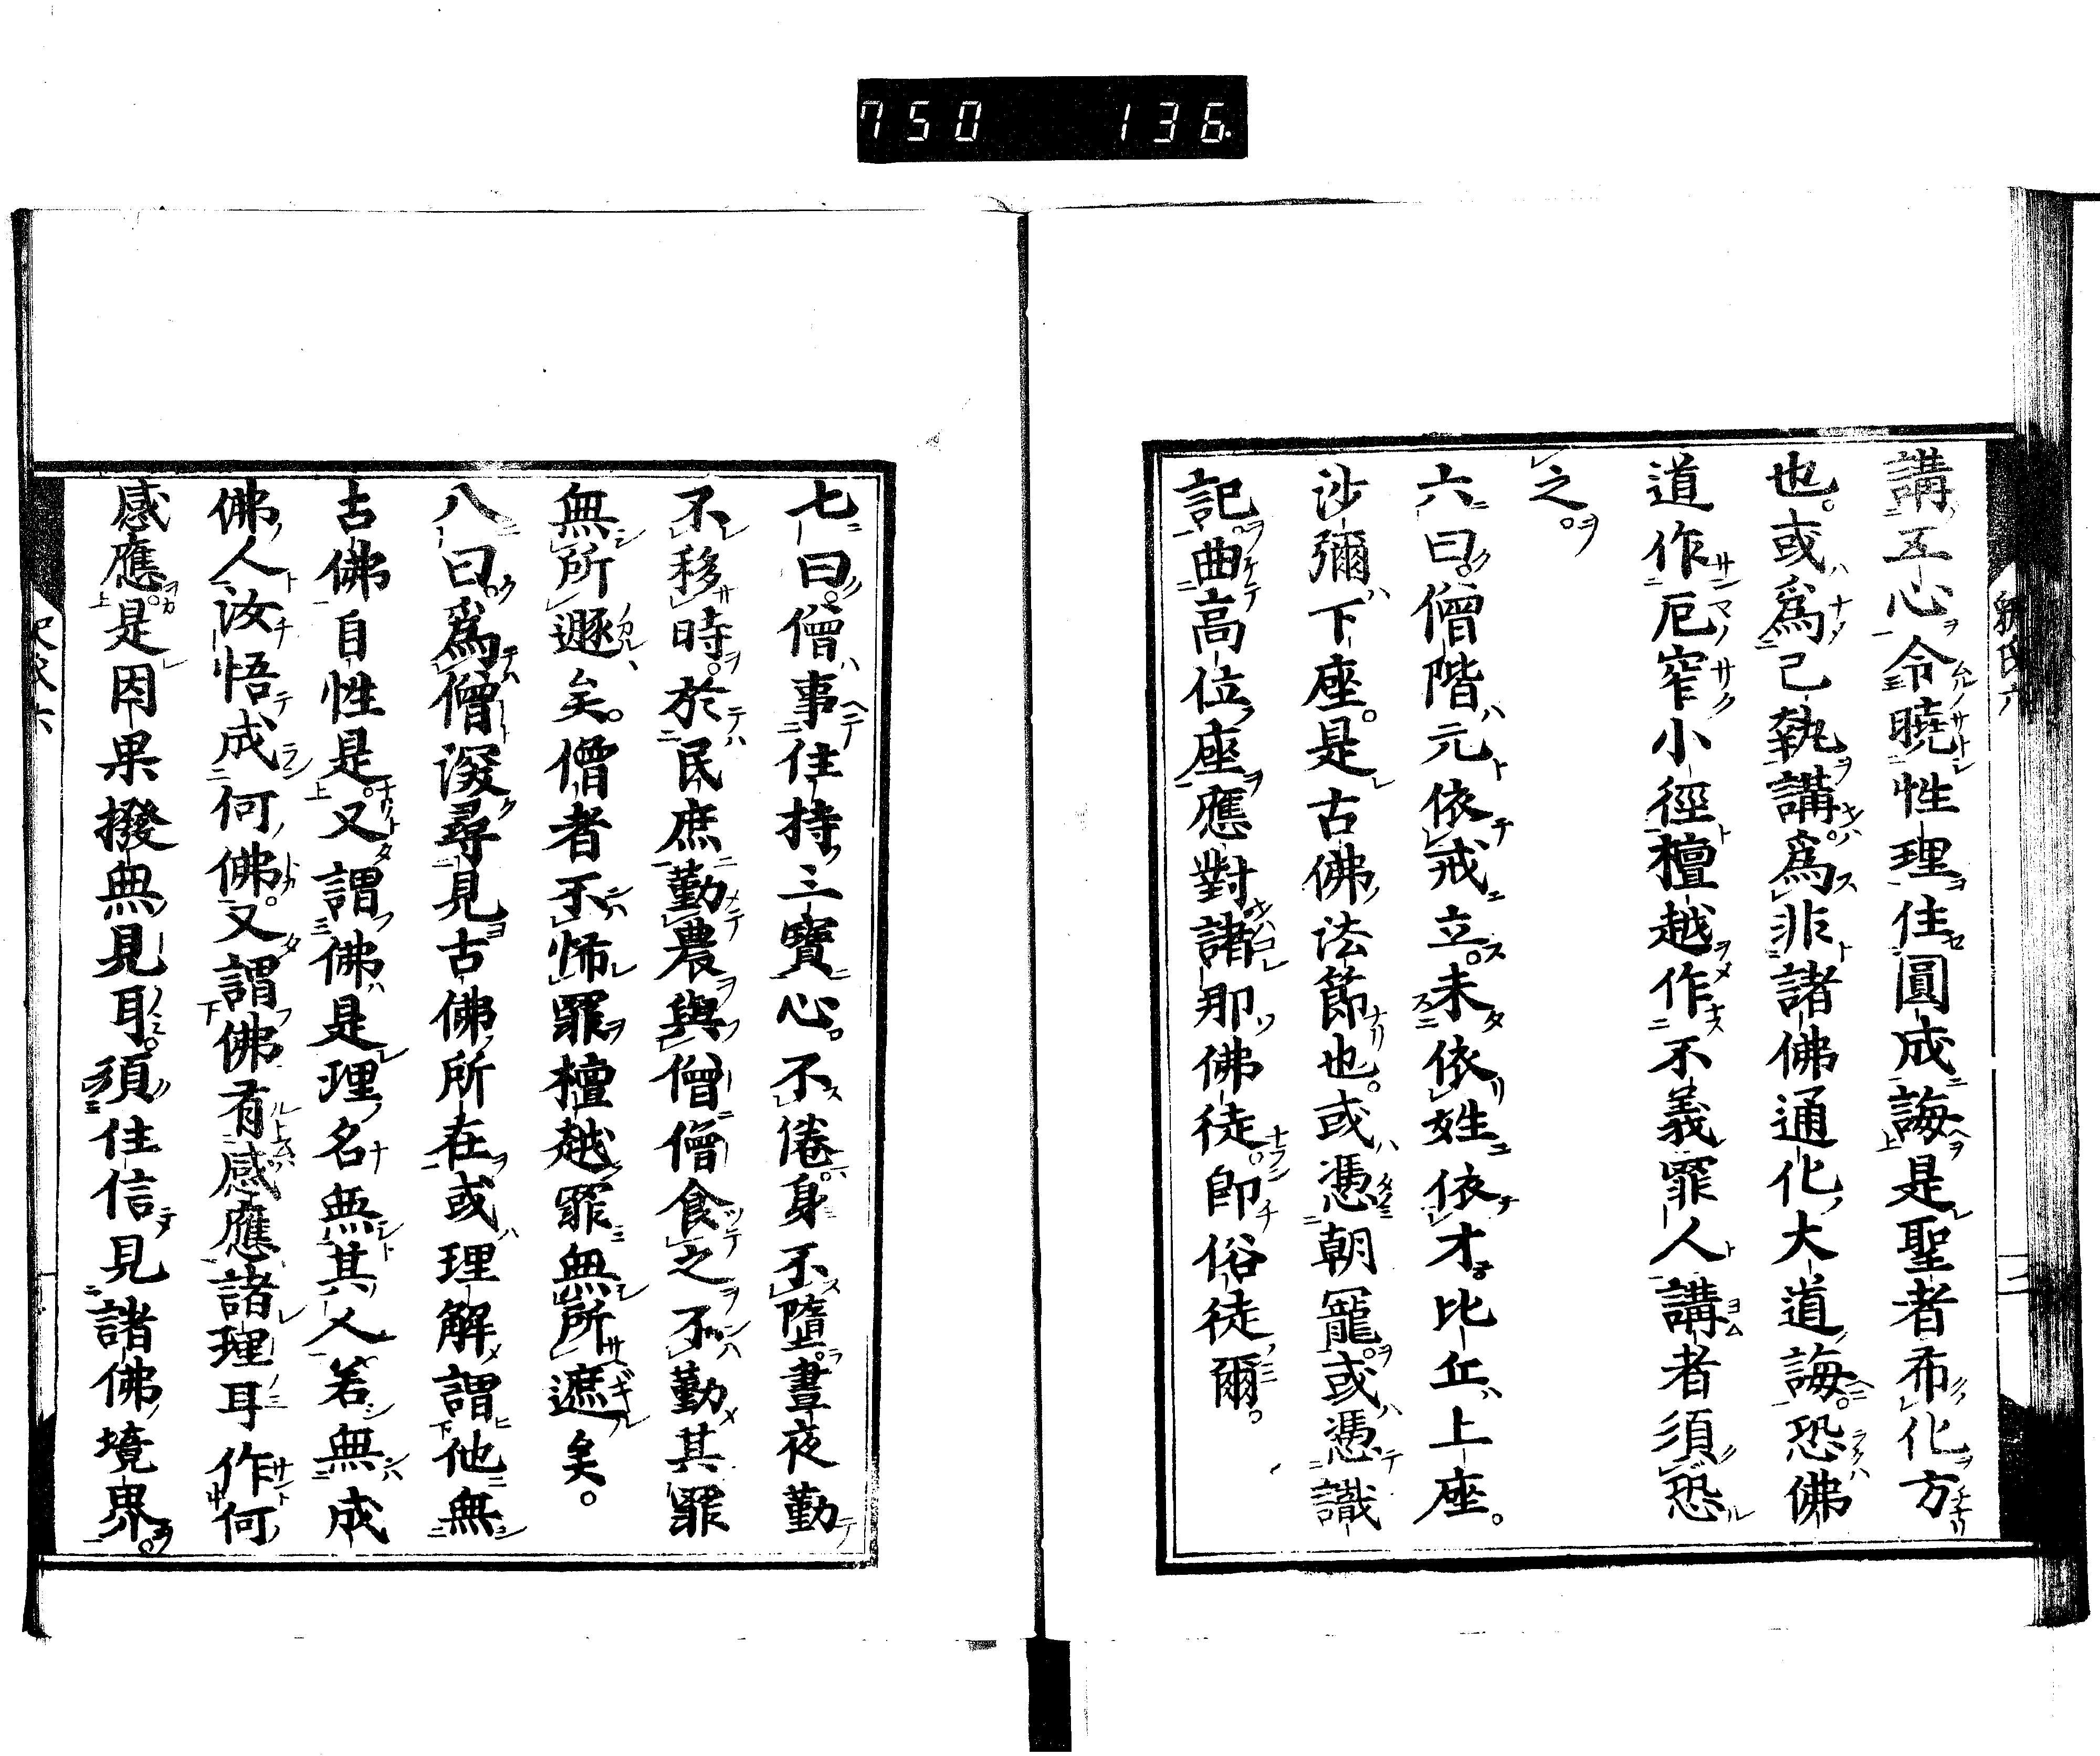 750 136
講工心令曉性理住圓成誨是聖者布化方
也或爲己執講爲非諸佛通化大道誨恐佛
道作厄窄小徑檀越作不義罪人講者須恐
之
六曰僧階元依戒立未依姓依才比丘上座
沙彌下座是古佛法節也或憑朝寵或憑識
記曲高位座應對諸那佛徒即俗徒爾
七曰僧事住持三寶心不倦身不墮晝夜勤
不移時於民庶勤農與僧僧食之不勤其罪
無所遯矣僧者不怖罪檀越罪無所遮矣
八曰爲僧深尋見古佛所在或理解謂他無
古佛自性是又謂佛是理名無其人若無成
佛人汝悟成何佛又謂佛有感應諸理耳作何
感應是因果撥無見耳須住信見諸佛境界